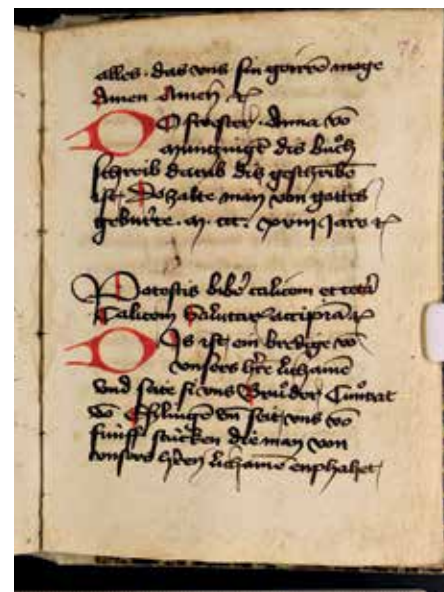 76.
alles. das vns sin goͤttē moge
Amen Amen ⁊c
DO swester Anna vō
schreib darab dis geschribē
ist Do zalte man von gottes
gebuͤrte. m. ccc. xviij Jare ⁊c
Potestis biberē calicem et totā
Calicem Salutar accipiā ⁊c
DIs ist ein bredige vō
vnsers hr̄e lichame
vnd seite si vns Bruͦder Cuͦnrat
vō Esslingē vn̄ seit vns vō
fuͤnff stucken die man von
vnsers hr̄en lichame enphahet